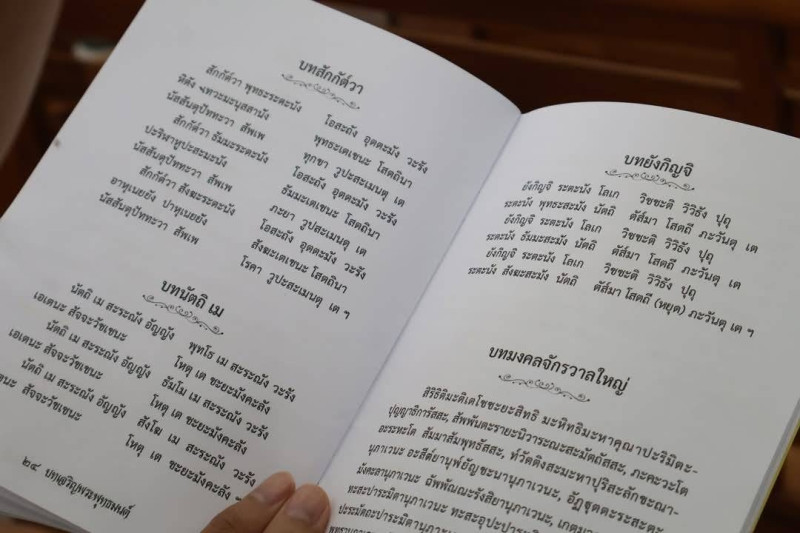 บทสักกัต๎วา
สักกัต๎วา พุทธะระตะนัง โอสะถัง อุตตะมัง วะรัง
หิตัง เทวะมะนุสสานัง พุทธะเตเชนะ โสตถินา
นัสสันตุปัททะวา สัพเพ ทุกขา วูปะสะเมนตุ เต
สักกัต๎วา ธัมมะระตะนัง โอสะถัง อุตตะมัง วะรัง
ปะริฬาหูปะสะมะนัง ธัมมะเตเชนะ โสตถินา
นัสสันตุปัททะวา สัพเพ ภะยา วูปะสะเมนตุ เต
สักกัต๎วา สังฆะระตะนัง โอสะถัง อุตตะมัง วะรัง
อาหุเนยยัง ปาหุเนยยัง สังฆะเตเชนะ โสตถินา
นัสสันตุปัททะวา สัพเพ โรคา วูปะสะเมนตุ เต ฯ
บทนัตถิ เม
นัตถิ เม สะระณัง อัญญัง พุทโธ เม สะระณัง วะรัง
เอเตนะ สัจจะวัชเชนะ โหตุ เต ชะยะมังคะลัง
นัตถิ เม สะระณัง อัญญัง ธัมโม เม สะระณัง วะรัง
เอเตนะ สัจจะวัชเชนะ โหตุ เต ชะยะมังคะลัง
นัตถิ เม สะระณัง อัญญัง สังโฆ เม สะระณัง วะรัง
สัจจะวัชเชนะ โหตุ เต ชะยะมังคะลัง ฯ
๒๔ บทเจริญพระพุทธมนต์
บทยังกิญจิ
ยังกิญจิ ระตะนัง โลเก วิชชะติ วิวิธัง ปุถุ
ระตะนัง พุทธะสะมัง นัตถิ ตัส๎มา โสตถี ภะวันตุ เต
ยังกิญจิ ระตะนัง โลเก วิชชะติ วิวิธัง ปุถุ
ระตะนัง ธัมมะสะมัง นัตถิ ตัส๎มา โสตถี ภะวันตุ เต
ยังกิญจิ ระตะนัง โลเก วิชชะติ วิวิธัง ปุถุ
ระตะนัง สังฆะสะมัง นัตถิ ตัส๎มา โสตถี (หยุด) ภะวันตุ เต ฯ
บทมงคลจักรวาลใหญ่
สิริธิติมะติเตโชชะยะสิทธิ มะหิทธิมะหาคุณาปะริมิตะ-
ปุญญาธิการัสสะ, สัพพันตะรายะนิวาระณะสะมัตถัสสะ, ภะคะวะโต
อะระหะโต สัมมาสัมพุทธัสสะ, ท๎วัตติงสะมะหาปุริสะลักขะณา-
นุภาเวนะ อะสีต๎ยานุพ๎ยัญชะนานุภาเวนะ, อัฏฐุตตะระสะตะ-
มังคะลานุภาเวนะ ฉัพพัณณะรังสิยานุภาเวนะ, เกตุมา
ทะสะปาระมิตานุภาเวนะ ทะสะอุปะปาระมิ
ปะระมัตถะปาระมิตานุภาเวนะ